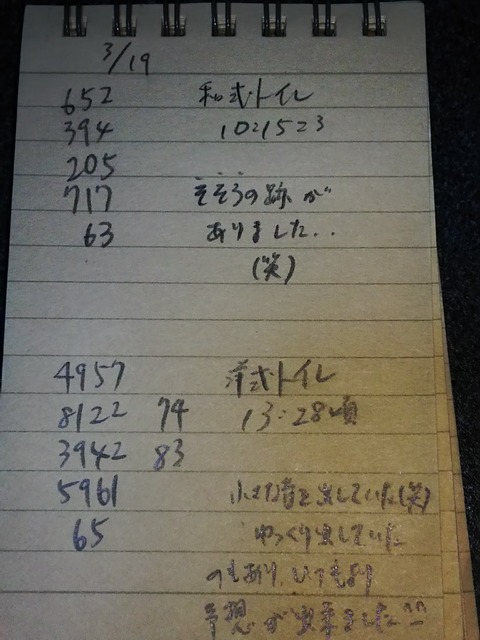 3/19
652 和式トイレ
394 10:15 23
205
717 そそうの跡が
63 ありました..
(笑)
4957 洋式トイレ
8122 74 13:28頃
3942 83
5961 小さな音を出していた(笑)
65 ゆっくり出していた
のもあり、いつもより
予想が出来ました^^